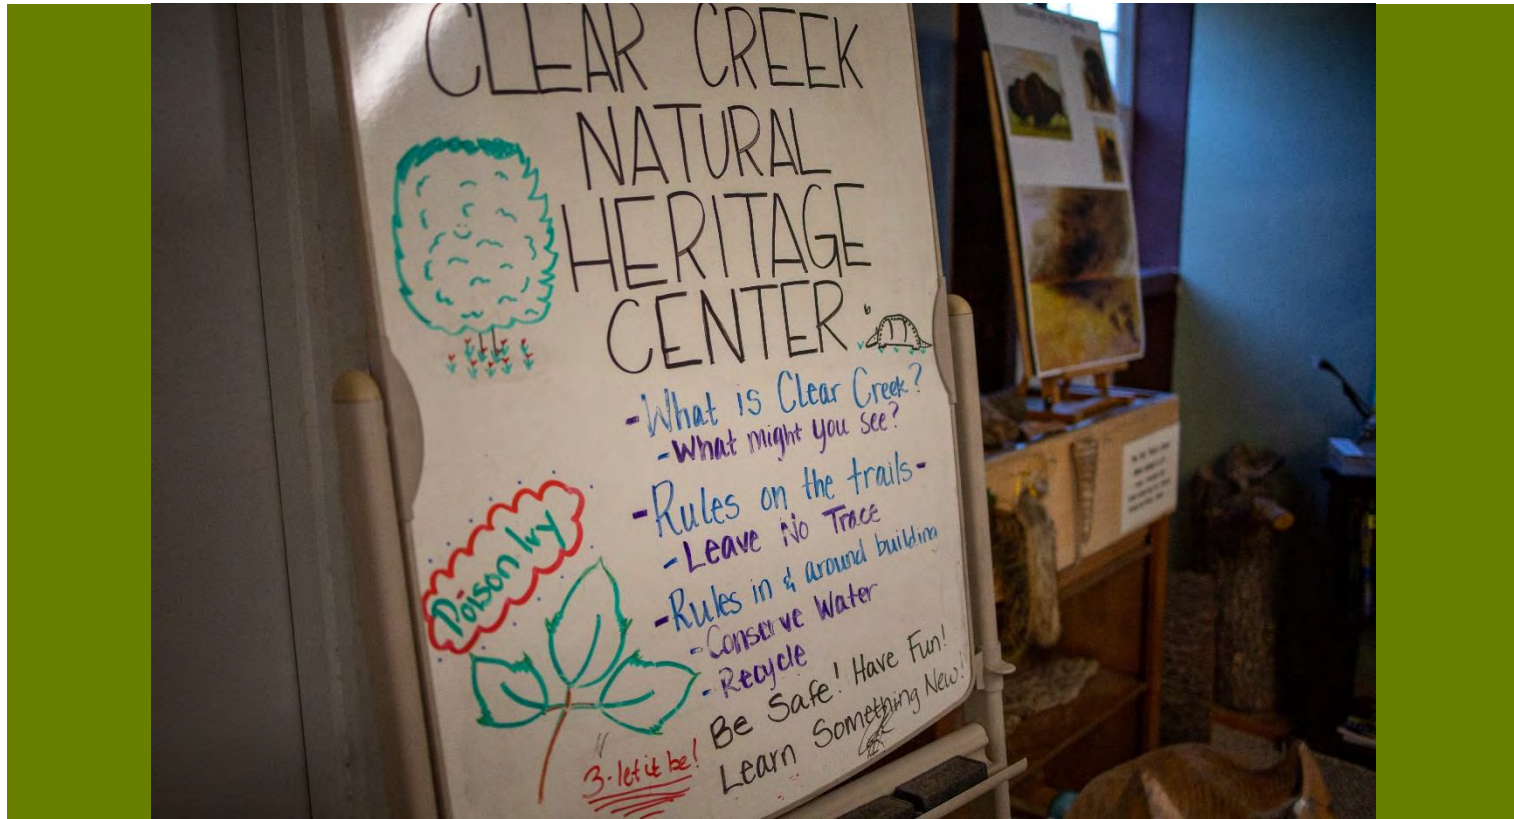 CLEAR CREEK
NATURAL
HERITAGE
CENTER
-What is Clear Creek?
-What might you see?
-Rules on the trails-
-Leave No Trace
-Rules in & around building
-Conserve Water
-Recycle
Be Safe! Have Fun!
Learn Something New!
Poison Ivy
3-let it be!